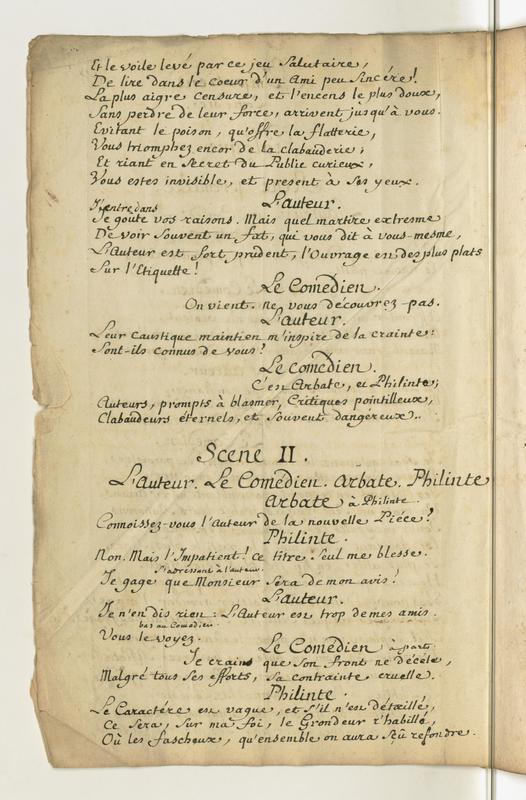 Et le voile levé par ce jeu salutaire,
De lire dans le coeur d'un ami peu sincére!
La plus aigre censure, et l'encens le plus doux,
Sans perdre de leur force, arrivent jusqu'à vous.
Evitant le poison, qu'offre la flatterie,
Vous triomphez encor de la clabauderie;
Et riant en secret du Public curieux,
Vous estes invisible, et present à ses yeux.
L'auteur.
J'entre dans
Je goute vos raisons. Mais quel martire extresme
De voir souvent un fat, qui vous dit à vous-mesme,
L'Auteur est fort prudent, l'Ouvrage en des plus plats
Sur l'Etiquette!
Le Comedien.
On vient. ne vous découvrez-pas.
L'auteur.
Leur caustique maintien m'inspire de la crainte:
Sont-ils connus de vous?
Le comedien.
C'est Arbate, et Philinte;
Auteurs, prompts à blasmer, Critiques pointilleux,
Clabaudeurs éternels, et souvent dangéreux..
Scene II.
L'auteur. Le Comédien. Arbate. Philinte
Arbate à Philinte.
Connoissez-vous l'auteur de la nouvelle Piéce?
Philinte.
Non. Mais l'Impatient! ce titre seul me blesse.
S'adressant à l'auteur.
Je gage que Monsieur sera de mon avis!
L'auteur.
Je n'en dis rien: L'Auteur est trop de mes amis.
bas au Comédien.
Vous le voyez.
Le Comédien à part.
Je crains que son front ne décéle,
Malgré tous ses efforts, sa contrainte cruelle.
Philinte.
Le Caractére est vague, et s'il n'est détaillé,
Ce sera, sur ma foi, le Grondeur r'habillé,
Où les fascheux, qu'ensemble on aura sçû refondre.